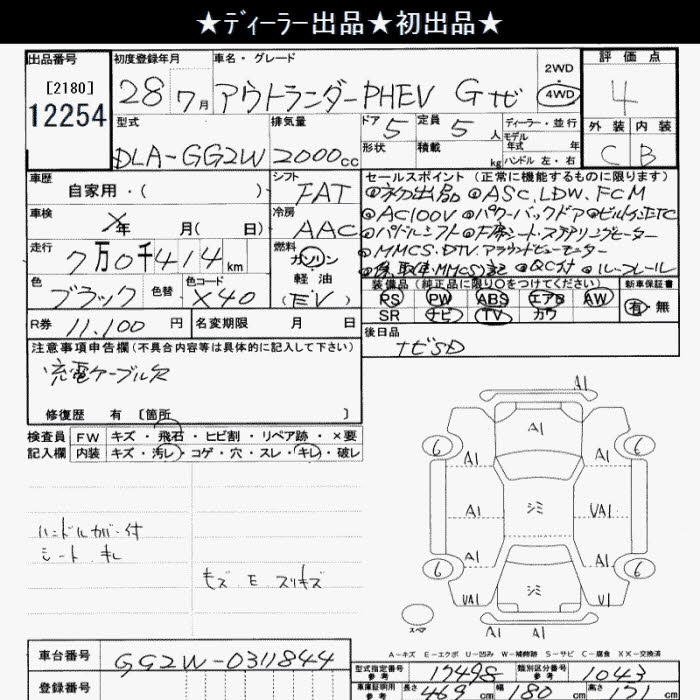 ★ディーラー出品★初出品★
出品番号 初度登録年月 車名・グレード 2WD 4WD 評価点
[2180]
12254
28 7月 アウトランダーPHEV Gナビ 4
型式 排気量 ドア 定員 ディーラー・並行 外装 内装
DLA-GG2W 2000cc 5 5人 モデル年式 年 C B
形状 積載 kg ハンドル 左・右
車歴 シフト セールスポイント (正常に機能するものに限ります)
自家用・( ) FAT
①初出品 ②ASC、LDW、FCM
車検 年 月( 日) 冷房 AAC
③AC100V ④パワーバックドア ⑤ビルトインETC
⑥パドルシフト ⑦F席シート・ステアリングヒーター
走行 7万0千414km 燃料 ガソリン
⑧MMCS・DTV アラウンドビューモニター
軽油
⑨保、取(車・MMCS)、記 ⑩QC付 ⑪ルーフレール
色 ブラック 色替 色コード X40 (EV)
装備品(純正品に限り〇をつけてください) 新車保証書
PS PW ABS エアB AW 有・無
SR ナビ TV カワ
R券 11,100円 名変期限 月 日
後日品 ナビSD
注意事項申告欄(不具合内容等は具体的に記入して下さい)
充電ケーブル欠
修復歴 有 [箇所 ]
検査員 FW キズ・飛石・ヒビ割・リペア跡・×要
記入欄 内装 キズ・汚レ・コゲ・穴・スレ・キレ・破レ
ハンドルカバー付
シート キレ
モズ E スリキズ
A1
A1
6 6
A1 A1
A1 シミ UA1
A1 A1
6 6
シミ
V1 V1
A1 A1
スペア
A-キズ E-エクボ U-凹み W-補修跡 S-サビ C-腐食 XX-交換済
車台番号 GG2W-0311844
型式指定番号 参考 17498 類別区分番号 参考 1043
登録番号
車庫証明用 参考 長さ 469cm 幅 180cm 高さ 171cm